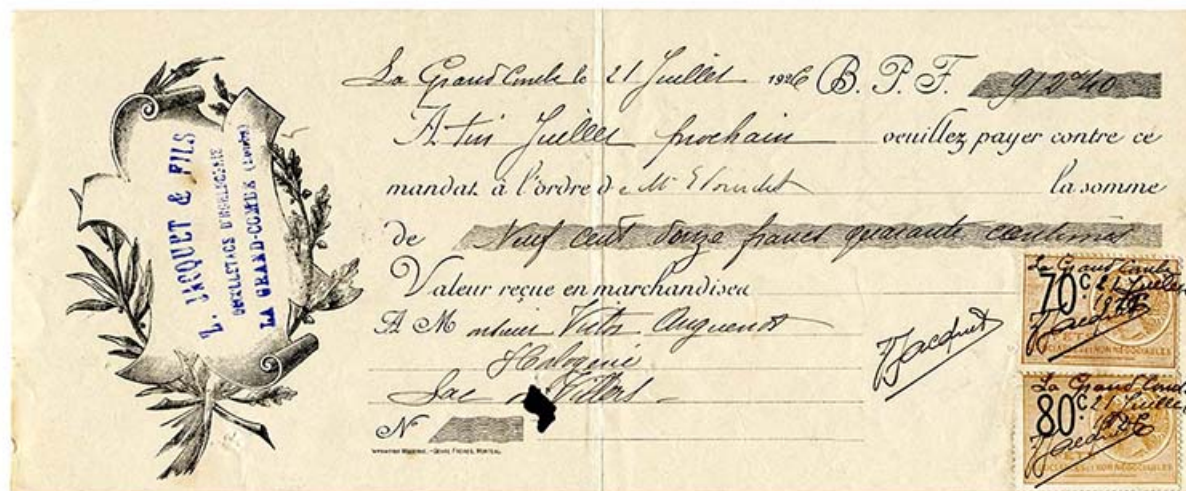 L. JACQUET & FILS
DECOLLETAGE D'HORLOGERIE
LA GRAND-COMBE (Doubs)
La Grand'Combe le 21 Juillet 1926 B. P. F. 912 40
A fin Juillet prochain veuillez payer contre ce
mandat à l'ordre de Mr la somme
de Neuf cent douze francs quarante centimes
Valeur reçue en marchandises
A Monsieur Victor
Horlogerie
Lac Villers
N
La Grand'Combe
70c 21 Juillet
1926
Jacquet
Jacquet
La Grand'Combe
80c 21 Juillet
1926
Jacquet